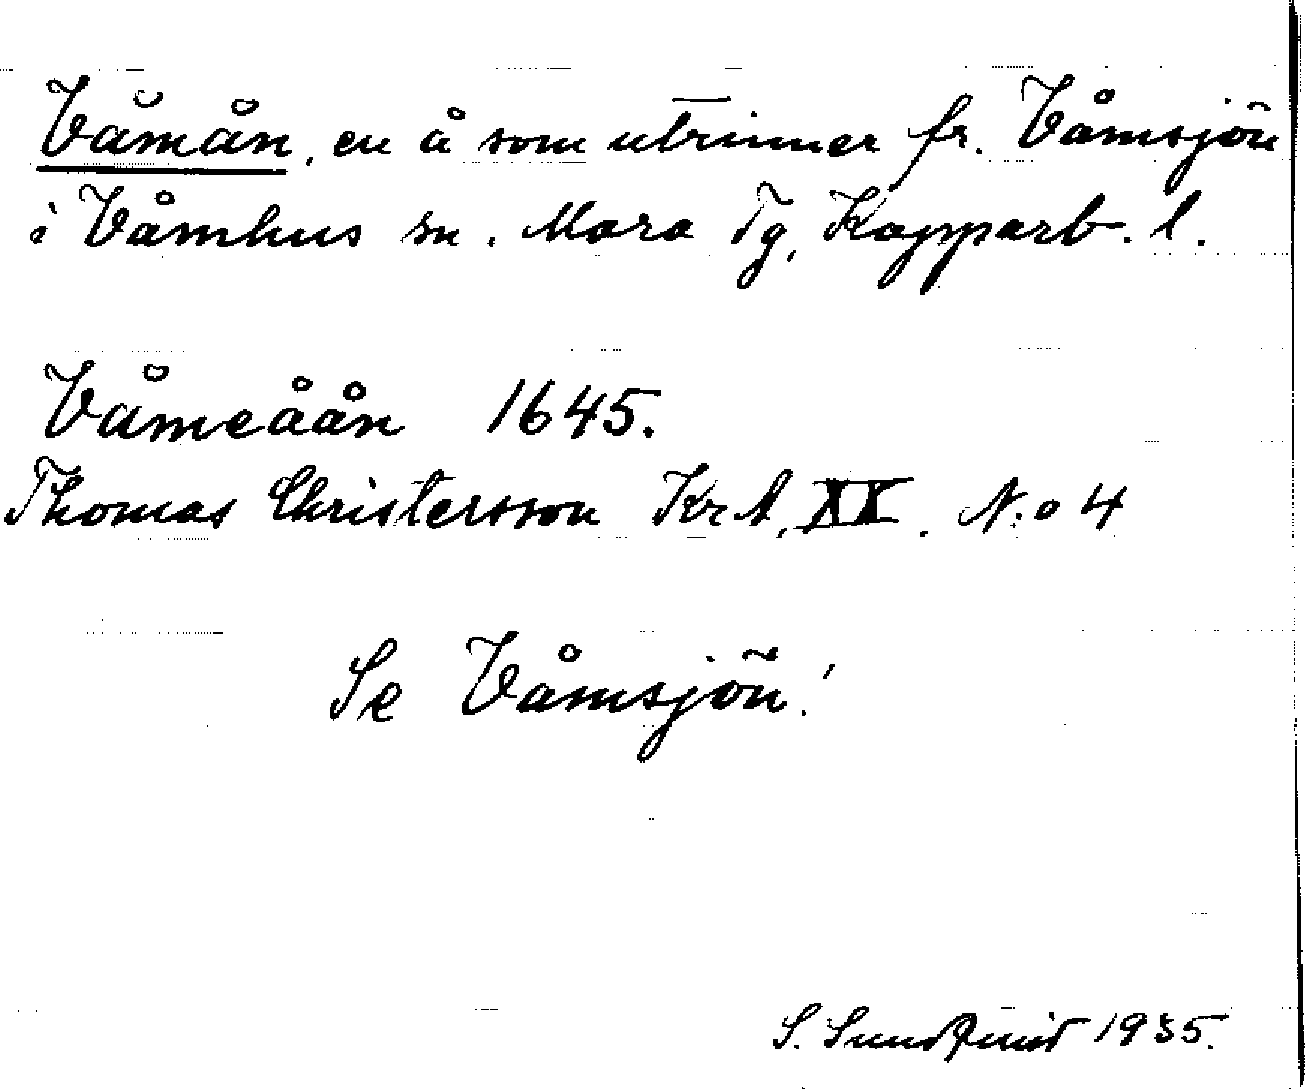 Våmån, en å som utrinner fr. Våmsjön
i Våmhus sn. Mora Tg, Kopparb. l.
Våmeåån 1645.
Thomas Christersson Kr A, XX. N:o 4
Se Våmsjön!
S. Sundqvist 1935.